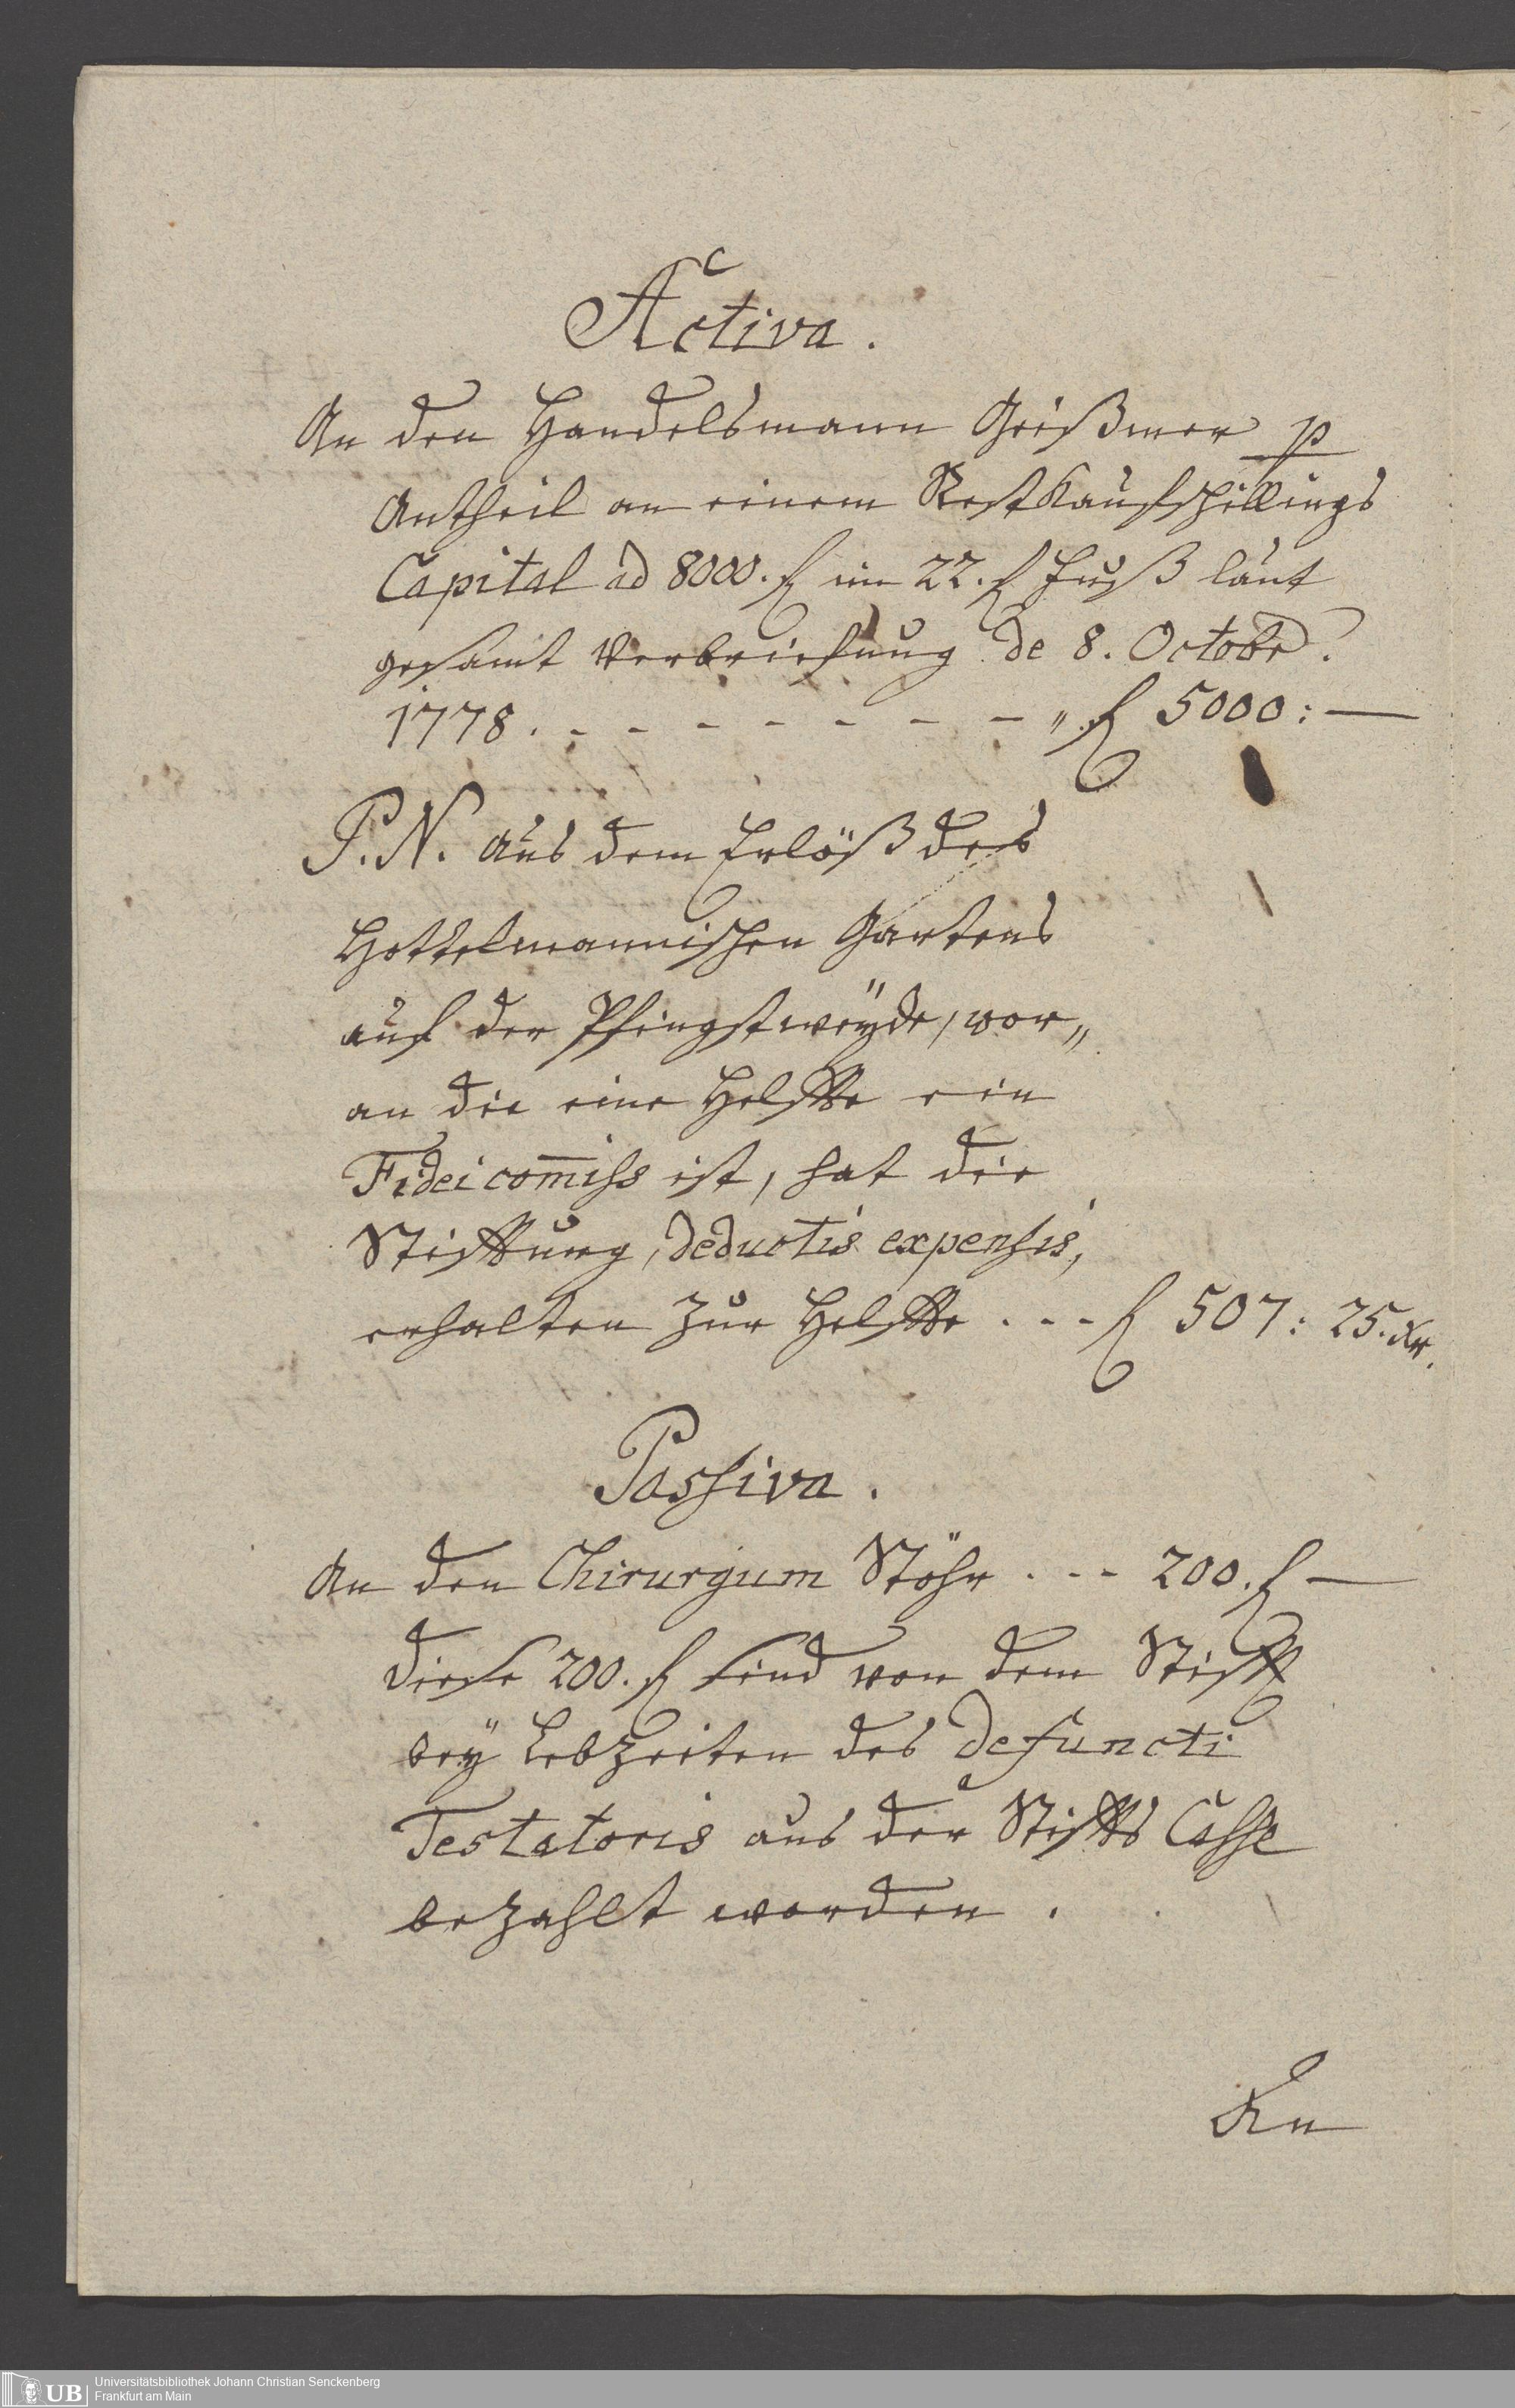 Activa.
An den Handelsmann Geißmer p
Antheil an einem Restkaufschillings
Capital ad 8000. f im 22. f Fuß laut
gesamt Verbriefung de 8. Octobr.
1778. - - - - - - - " f 5000: —
P. N. Aus dem Erlöß des
Hottelmannischen Gartens
auf der Pfingstweyde, wor„
an die eine Helffte ein
Fidei com̄iss ist, hat die
Stifftung, deductis expensis,
erhalten zur Helffte . - - - f 507: 25. Xr.
Passiva.
An den Chirurgum Stöhr . - - - 200. f —
diese 200. f sind von dem Stifft
beÿ Lebzeiten des defuncti
Testatoris aus der Stiffts Casse
bezahlt worden.
An
UB
Universitätsbibliothek Johann Christian Senckenberg
Frankfurt am Main